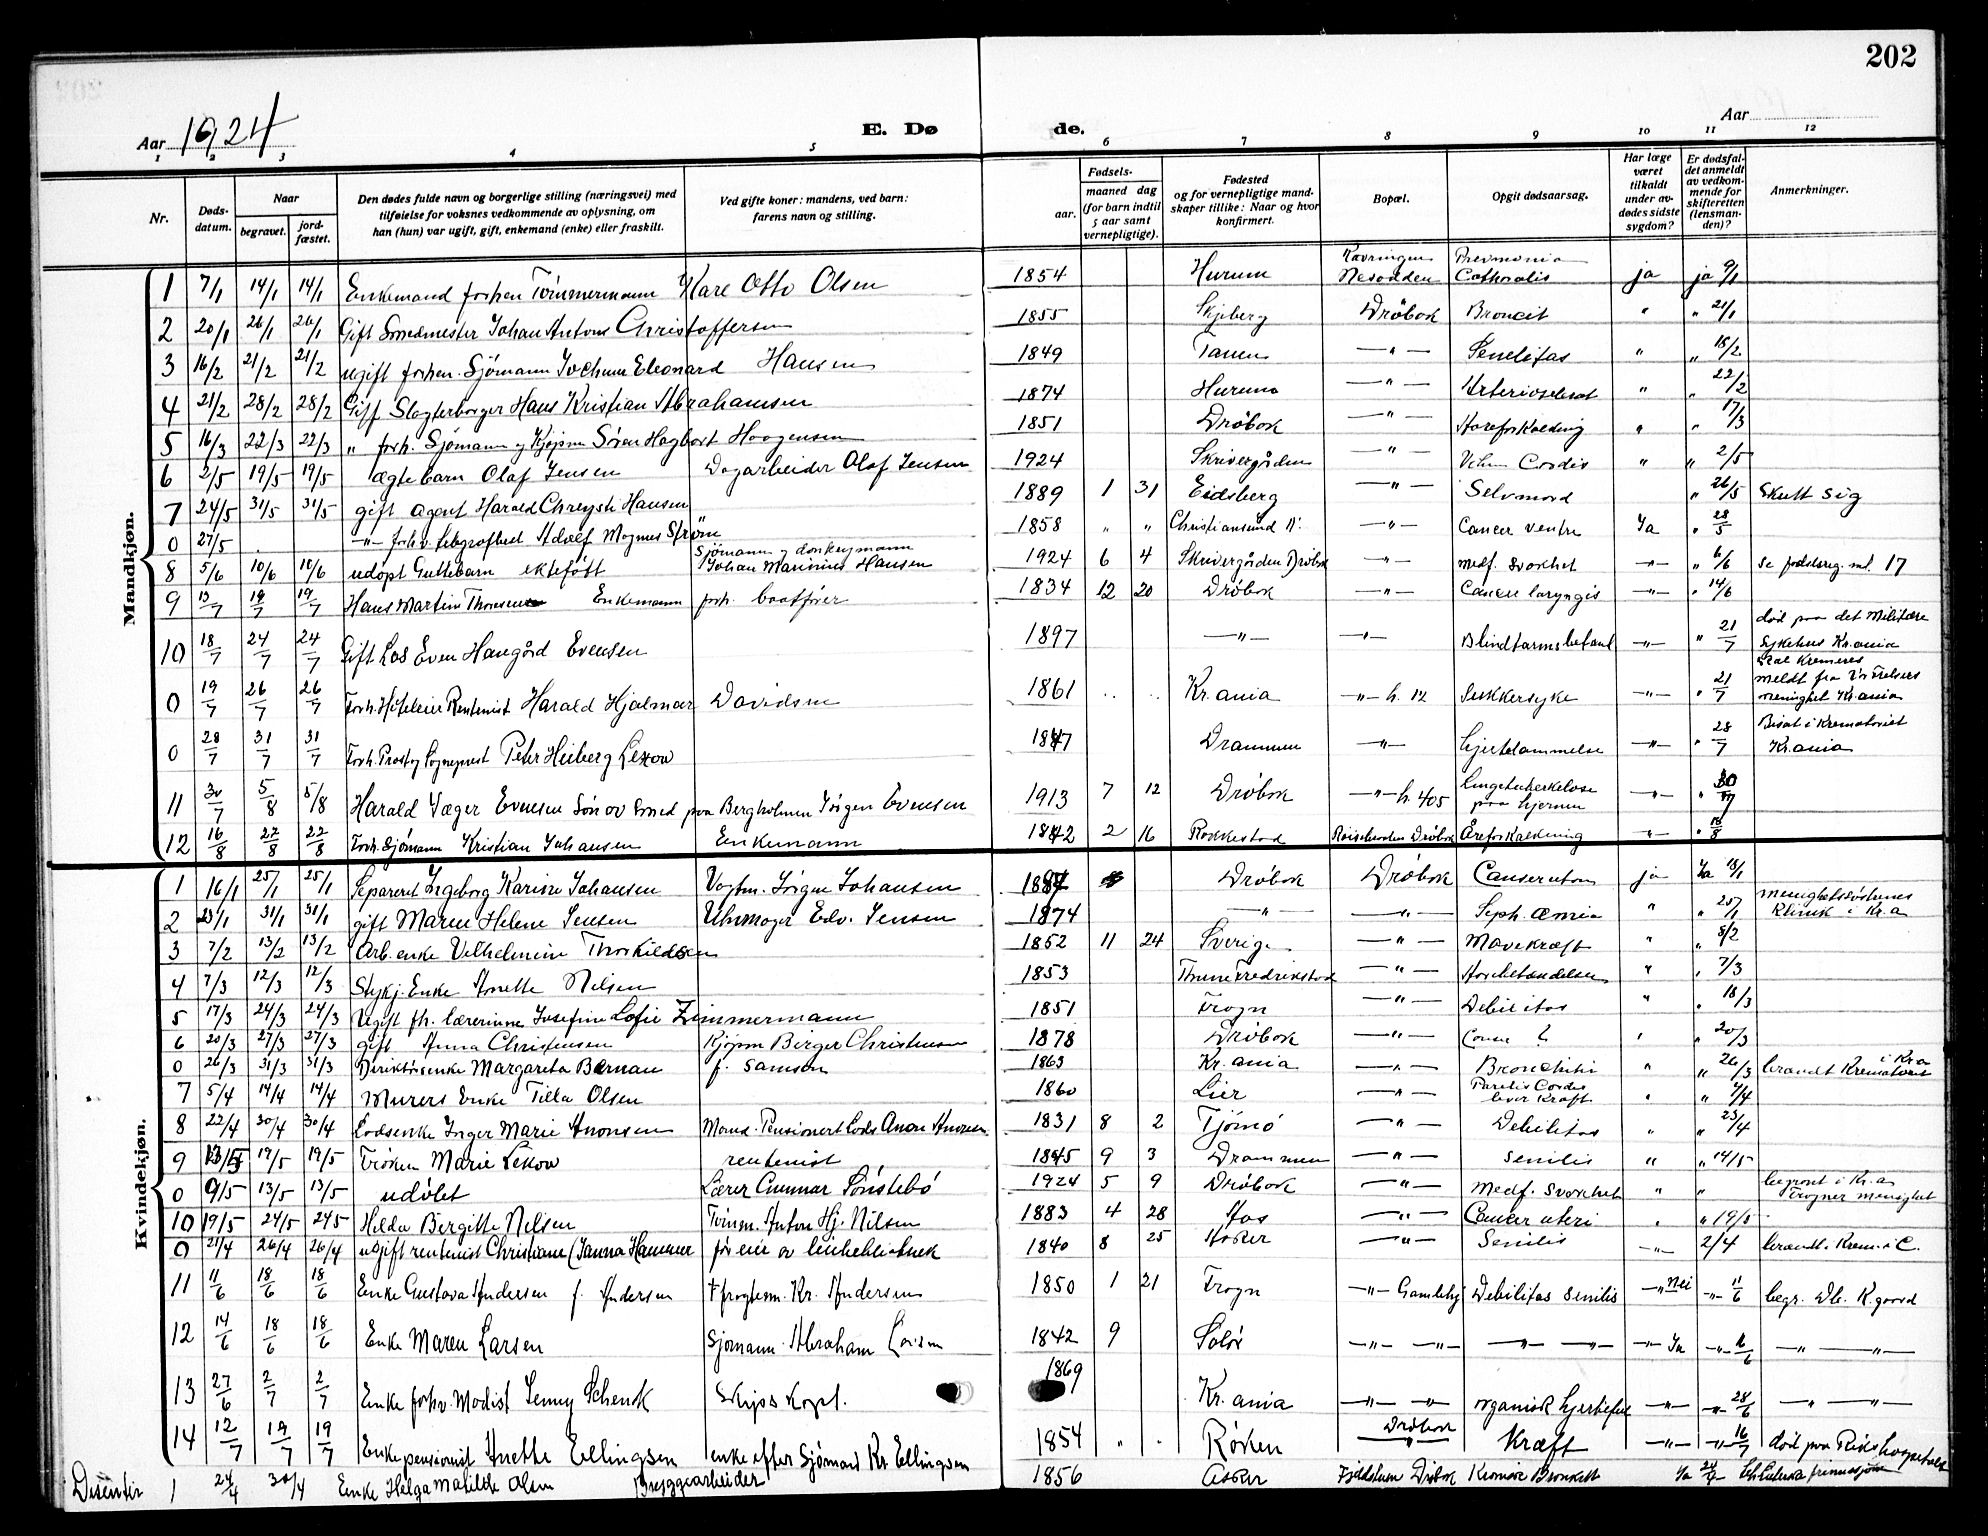 202
Aar 1924
E. Dø de.
Aar
1 2 3 4 5 6 7 8 9 10 11 12
Nr.
Døds-datum.
Naar
begravet.
jord-fæstet.
Den dødes fulde navn og borgerlige stilling (næringsvei) med tilføielse for voksnes vedkommende av oplysning, om han (hun) var ugift, gift, enkemand (enke) eller fraskilt.
Ved gifte koner: mandens, ved barn: farens navn og stilling.
Fødsels-
aar.
maaned dag
(for barn indtil 5 aar samt vernepligtige).
Fødested og for vernepligtige mandskaper tillike: Naar og hvor konfirmert.
Bopæl.
Opgit dødsaarsag.
Har læge været tilkaldt under avdødes sidste sygdom?
Er dødsfaldet anmeldt av vedkommende for skifteretten (lensmanden)?
Anmerkninger.
Mandkjøn.
1 7/1 14/1 14/1 Enkemand forhen Tömmermann Kare Otto Olsen 1854 Hurum Nesodden ja ja 9/1
2 20/1 26/1 26/1 Gift Smedmester Johan Antons Christoffersen 1855 Skjeberg Dröbak Broncit " " 21/1
3 16/2 21/2 21/2 ugift forhen. Sjømann Jochum Eleonard Hansen 1849 — " — Senelitas " " 18/2
4 21/2 28/2 28/2 Gift Slagterborger Hans Kristian Abrahamsen 1874 Hurum — " — " " 22/2
5 16/3 22/3 22/3 " forh. Sjømann og Kjøpm Sören Hagbart Haagensen 1851 Dröbak — " — " " 17/3
6 2/5 19/5 19/5 ægte barn Olaf Jensen Dagarbeider Olaf Jensen 1924 Skrivergården — " — Cordis " " 2/5
7 24/5 31/5 31/5 gift agent Harald Chreysti Hansen 1889 1 31 Eidsberg — " — Selvmord " 26/5 Skutt sig
0 27/5 — " — forhv. Adolf Magnus Ström 1858 " " Christiansund N. — " — Cancer ventre Ja " 28/5
8 5/6 10/6 10/6 udöpt Guttebarn ektefött Sjømann og donkeymann Johan Marinius Hansen 1924 6 4 Skrivergården Dröbak — " — medf. svakhet — " — " 6/6 se fødselsreg. nl. 17
9 13/7 19/7 19/7 Hans Martin Thoresen Enkemann forh. baatfører 1834 12 20 Dröbak — " — Cancer laryngis — " — " 14/6
10 18/7 24/7 24/7 Gift Los Even Haugård Evensen 1897 — " — — " — Blindtarmsbetænd — " — " 21/7 død paa det Militære Sykehus Kr.ania
0 19/7 26/7 26/7 Forh. Hoteleier Rentenist Harald Hjalmar Davidsen 1861 Kr.ania — " — h. 12 Sukkersyke — " — " 21/7 Skal Kremeres meldt fra menighet Kr.ania
0 28/7 31/7 31/7 Forh. Prost og Sogneprest Peter Heiberg Lexow 1847 Drammen — " — hjertelammelse — " — " 28/7 Bisat i Krematoriet Kr.ania
11 30/7 5/8 5/8 Harald Jæger Evensen Sön av Smed paa Bergholmen Jörgen Evensen 1913 7 12 Dröbak — " — h. 405 Lungetuberkelose paa hjernen — " — " 30/7
12 16/8 22/8 22/8 Forh. Sjømann Kristian Johansen Enkemann 1842 2 16 Rakkestad Dröbak Åreforkalkning — " — " 18/8
Kvindekjøn.
1 16/1 25/1 25/1 Separeret Ingeborg Karine Johansen Vogtm. Jörgen Johansen 1887 Dröbak Dröbak ja Ja 18/1
2 23/1 31/1 31/1 gift Maren Helene Jensen Uhrmager Edv. Jensen 1874 — " — — " — Seph. æmia " " 25/1 menighetssöstrenes Klinik i Kr.a
3 7/2 13/2 13/2 Arb. enke Velhelmine Thorkildsen 1852 11 24 Sverige — " — Mavekræft " " 8/2
4 7/3 12/3 12/3 Stykj. Enke Anette Nilsen 1853 Thune Fredrikstad — " — " " 7/3
5 17/3 24/3 24/3 Ugift fh. lærerinne Josefine Lofie Zimmermann 1851 Frogn — " — Debilitas " " 18/3
6 20/3 27/3 27/3 gift Anna Christensen Kjøpm Birger Christensen 1878 Dröbak — " — " " 20/3
0 26/3 31/3 31/3 Direktörsenke Margareta Bernau f. Samson 1863 Kr.ania — " — Bronchiti " " 26/3 brændt Krematoriet i Kr.a
7 5/4 14/4 14/4 Murers Enke Tilla Olsen 1860 Lier — " — Paralis Cordis lever Kræft " " 7/4
8 22/4 30/4 30/4 Lodsenke Inger Marie Anonsen Mand. Pensionert Lods Anon Anonsen 1831 8 2 Tjömö — " — Debilitas " " 23/4
9 13/5 19/5 19/5 Fröken Marie Lexow rentenist 1845 9 3 Drammen — " — Senilis " " 14/5
0 9/5 13/5 13/5 udölet Lærer Gunnar Sönstebö 1924 5 9 Dröbak — " — Medf. Svakhet " " begravet i Kr.a Frogner menighet
10 19/5 24/5 24/5 Hilda Bergitte Nilsen Tömm. Anton Hj. Nilsen 1883 4 28 Aas — " — Cancer uteri " " 19/5
0 21/4 26/4 26/4 ugift rentenist Christiane (Janna Hammer för eier av leiebibliotek 1840 8 25 Asker — " — Senilis — " — 2/4 brændt. Krem. i C.
11 11/6 18/6 18/6 Enke Gustava Andersen f. Andersen † fragtem. Kr. Andersen 1850 1 21 Frogn — " — Gamlehj Debilitas senilis — " — nei — " — 11/6 begr. Db. K.gaard
12 14/6 18/6 18/6 Enke Maren Larsen Sjømann Abraham Larsen 1842 9 Solör — " — — " — — " — — " — — " — Ja — " — 16/6 — " — — " —
13 27/6 2/7 2/7 Enke forhv. Modist Jenny Schenck Skibs Kapt. 1869 Kr.ania — " — — " — organisk hjertefeil — " — — " — 28/6 — " — — " —
14 12/7 19/7 19/7 Enke pensionist Anette Ellingsen enke efter Sjømand Kr. Ellingsen 1854 " Röken Dröbak Kræft — " — — " — 16/7 död paa Rikshospitalet
Disenter 1 24/4 30/4 Enke Helga Matilde Olsen Bryggearbeider 1856 Asker Dröbak Kronisk Bronkitt Ja